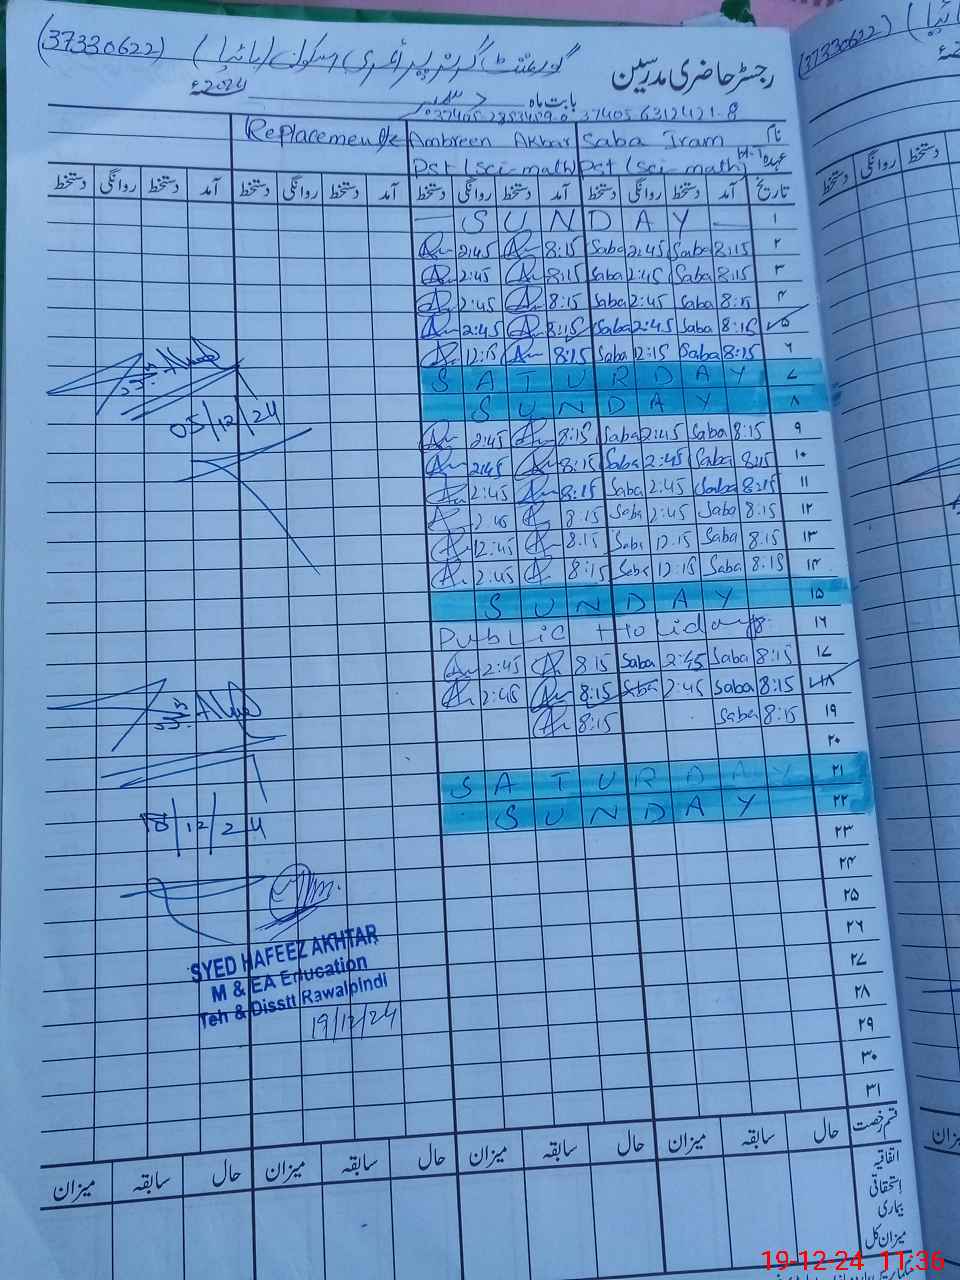 (37330622) گورنمنٹ گرلز پرائمری سکول (ہاٹیا) رجسٹر حاضری مدرسین
بابت ماہ دسمبر 2024ء
37405 6312421-8
نام Saba Iram Ambreen Akbar Replacement
عہدہ Pst (Sci-math) Pst (Sci-math)
تاریخ آمد دستخط روانگی دستخط آمد دستخط روانگی دستخط آمد دستخط روانگی دستخط آمد دستخط روانگی دستخط
۱ SUNDAY
۲ 8:15 Saba 2:45 Saba 8:15 2:45
۳ 8:15 Saba 2:45 Saba 8:15 2:45
۴ 8:15 Saba 2:45 Saba 8:15 2:45
۵ 8:15 Saba 2:45 Saba 8:15 2:45
۶ 8:15 Saba 12:15 Saba 8:15 12:15
۷ SATURDAY
۸ SUNDAY
05/12/24
۹ 8:15 Saba 2:45 Saba 8:15 2:45
۱۰ 8:15 Saba 2:45 Saba 8:15 2:45
۱۱ 8:15 Saba 2:45 Saba 8:15 2:45
۱۲ 8:15 Saba 2:45 Saba 8:15 2:45
۱۳ 8:15 Saba 12:15 Saba 8:15 12:45
۱۴ 8:15 Saba 12:15 Saba 8:15 2:45
۱۵ SUNDAY
۱۶ Public Holiday
۱۷ 8:15 Saba 2:45 Saba 8:15 2:45
۱۸ 8:15 Saba 2:45 Saba 8:15 2:45
۱۹ 8:15 Saba 8:15
۲۰
۲۱ SATURDAY
۲۲ SUNDAY
18/12/24
۲۳
۲۴
۲۵
۲۶
۲۷
۲۸
۲۹
۳۰
۳۱
SYED HAFEEZ AKHTAR
M & EA Education
Teh & Disstt Rawalpindi
19/12/24
قسم رخصت حال سابقہ میزان حال سابقہ میزان حال سابقہ میزان حال سابقہ میزان
اتفاقیہ
استحقاقی
بیماری
میزان کل
(37330622)
19-12-24 11:36